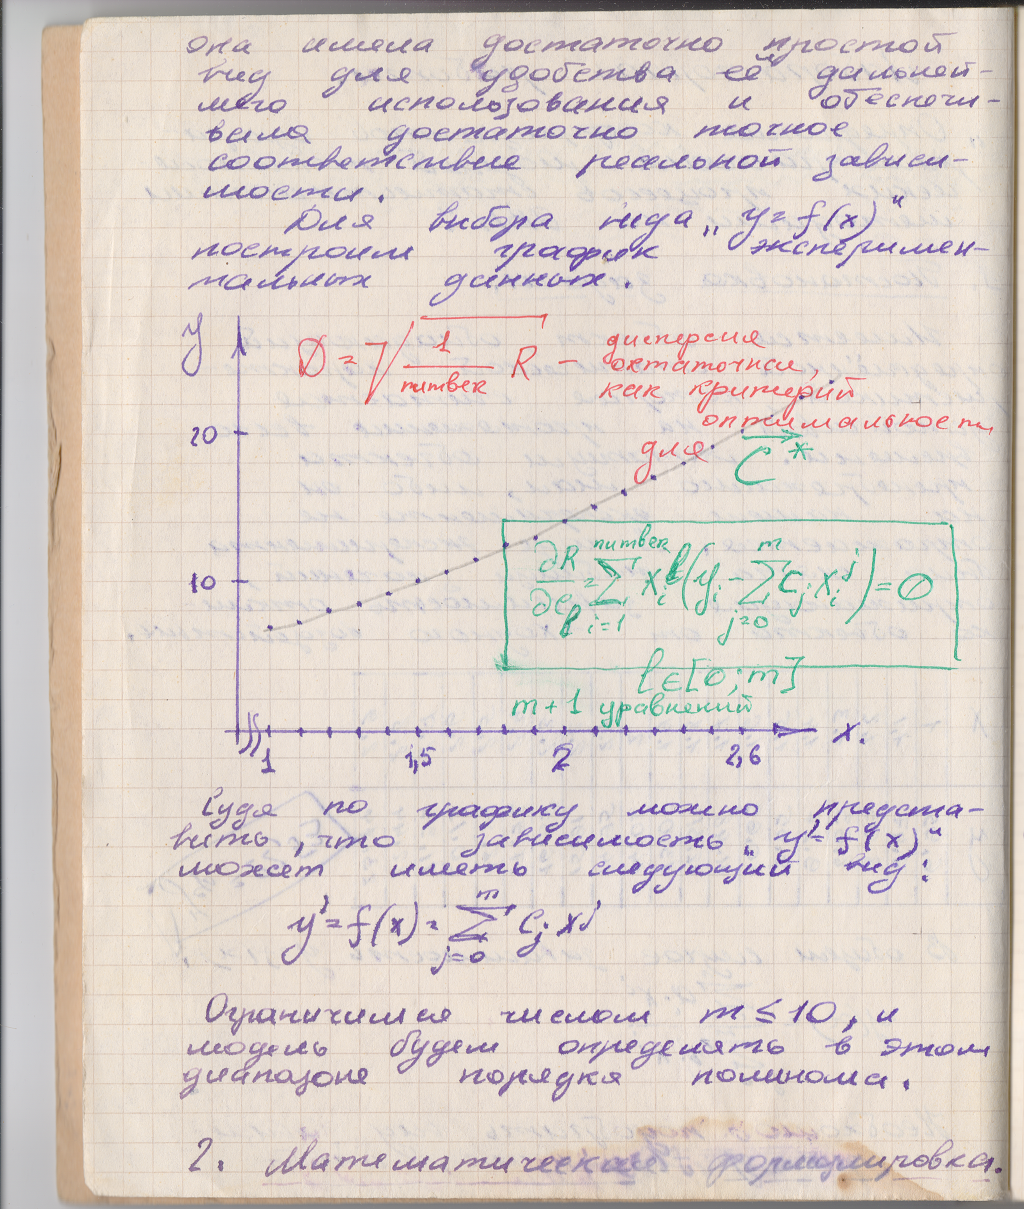 она имела достаточно простой
вид для удобства её дальней-
шего использования и обеспечи-
вала достаточно точное
соответствие реальной зависи-
мости.
Для выбора вида „y=f(x)“
построим график эксперимен-
тальных данных.
y
D = √ 1/number R – дисперсия
остаточная,
как критерий
оптимальности
для C*
20
∂R/∂c_l = ∑_{i=1}^{number} x_i^l (y_i - ∑_{j=0}^{m} c_j x_i^j) = 0
10
l ∈ [0; m]
m+1 уравнений
1 1,5 2 2,6 x.
Судя по графику можно предста-
вить, что зависимость „y'=f(x)“
может иметь следующий вид:
y' = f(x) = ∑_{j=0}^{m} c_j x^j
Ограничимся числом m ≤ 10, и
модель будем определять в этом
диапазоне порядка полинома.
2. Математическая формулировка.